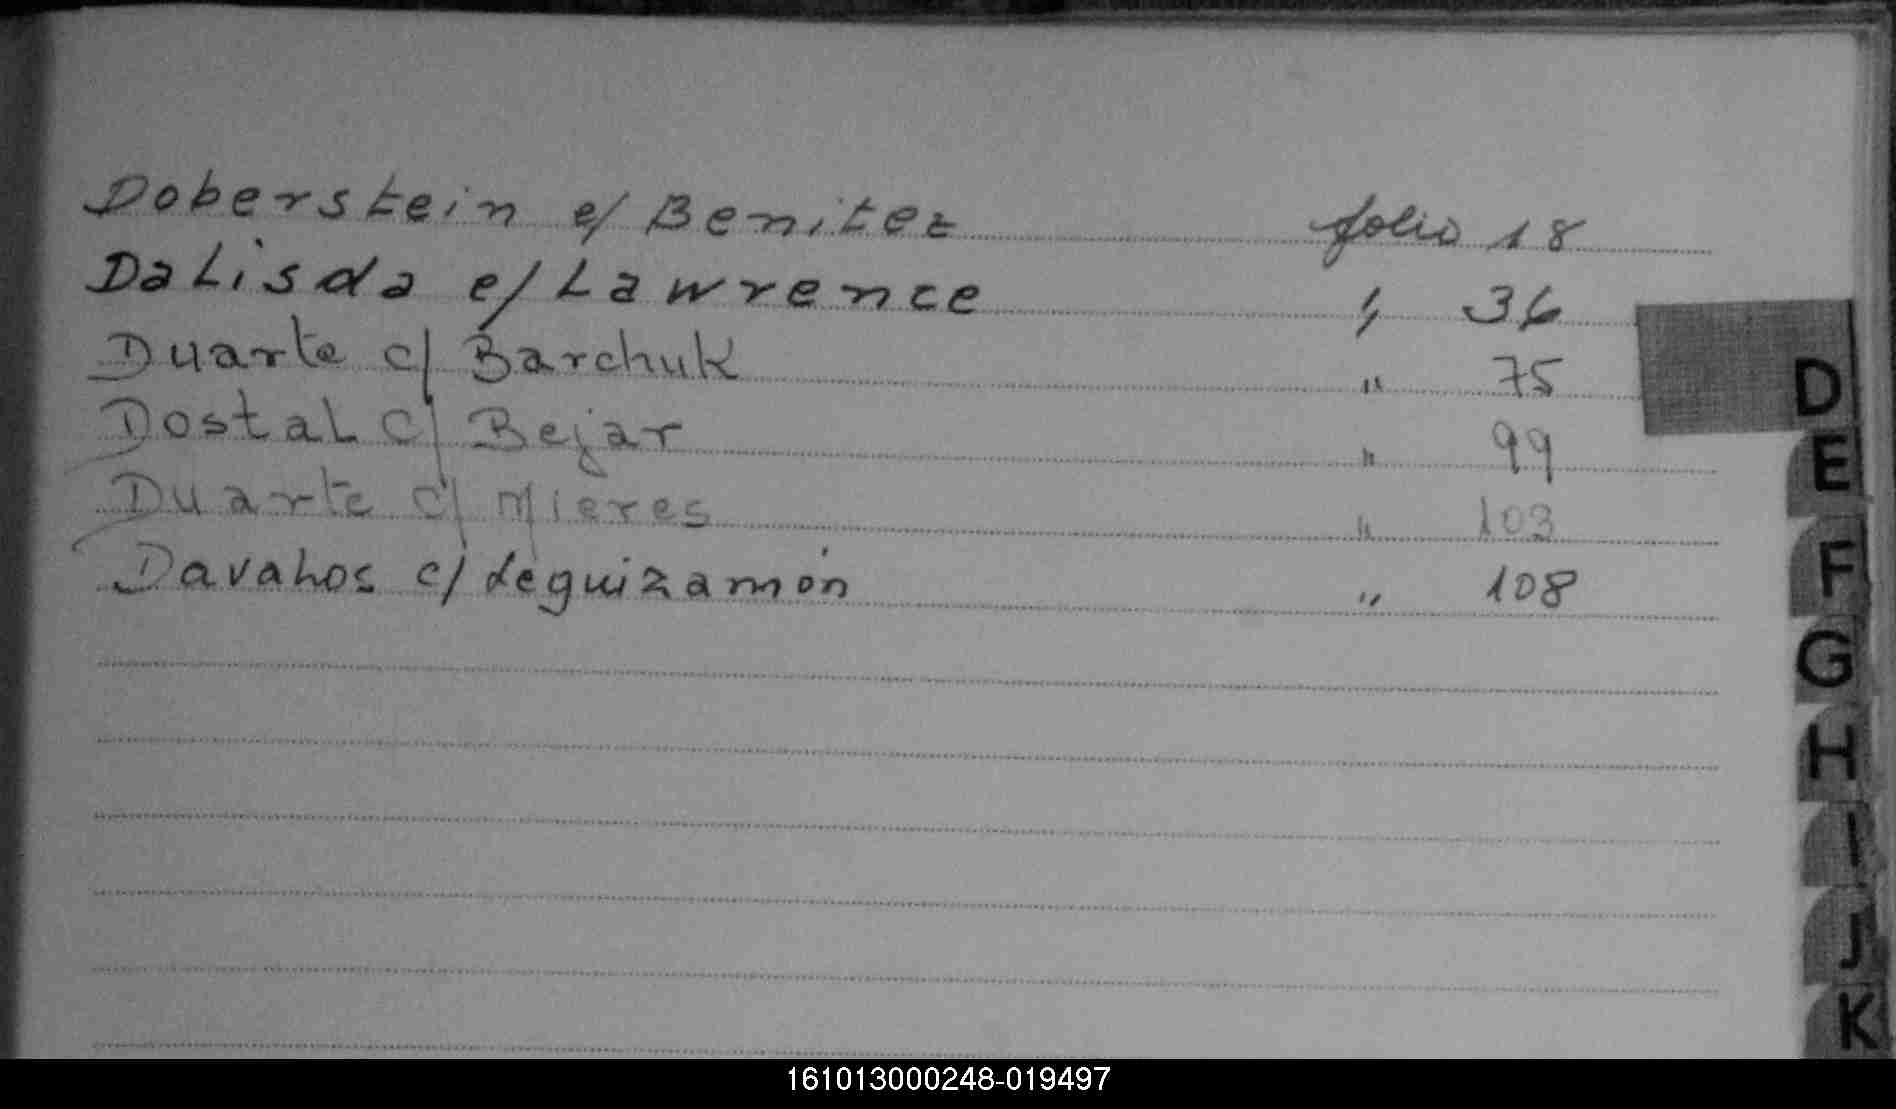 Doberstein e/ Benitez folio 18
Dalisda e/ Lawrence " 36
Duarte c/ Barchuk " 75
Dostal c/ Bejar " 99
Duarte c/ Mieres " 103
Davalos c/ Leguizamón " 108
D
E
F
G
H
I
J
K
161013000248-019497